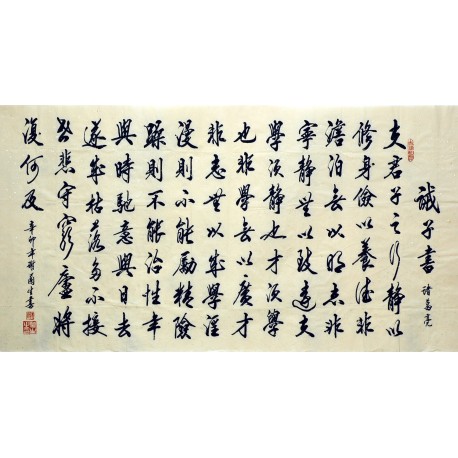 誡子書 諸葛亮
夫君子之行靜以
修身儉以養德非
澹泊無以明志非
寧靜無以致遠夫
學須靜也才須學
也非學無以廣才
非志無以成學淫
漫則不能勵精險
躁則不能冶性年
與時馳意與日去
遂成枯落多不接
世悲守窮廬將
復何及
辛卯年 書